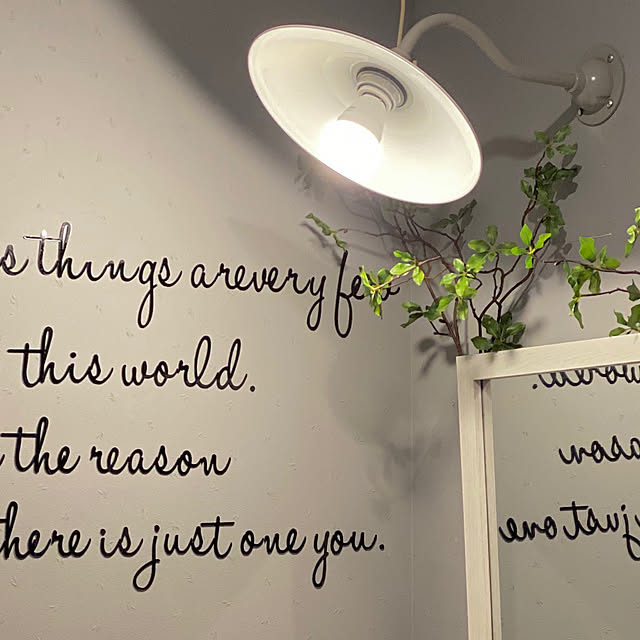 s things arevery few
this world.
the reason
there is just one you.